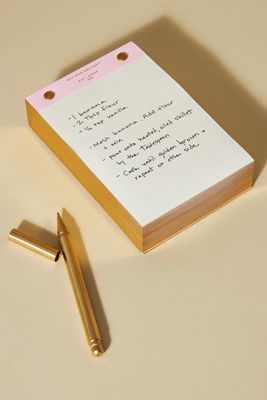 -1 banana
-2 Tbsp flour
-1/2 tsp vanilla
-Mash banana. Add flour
+ mix
-pour onto heated, oiled skillet
by the tablespoon
-Cook until golden brown +
repeat on other side